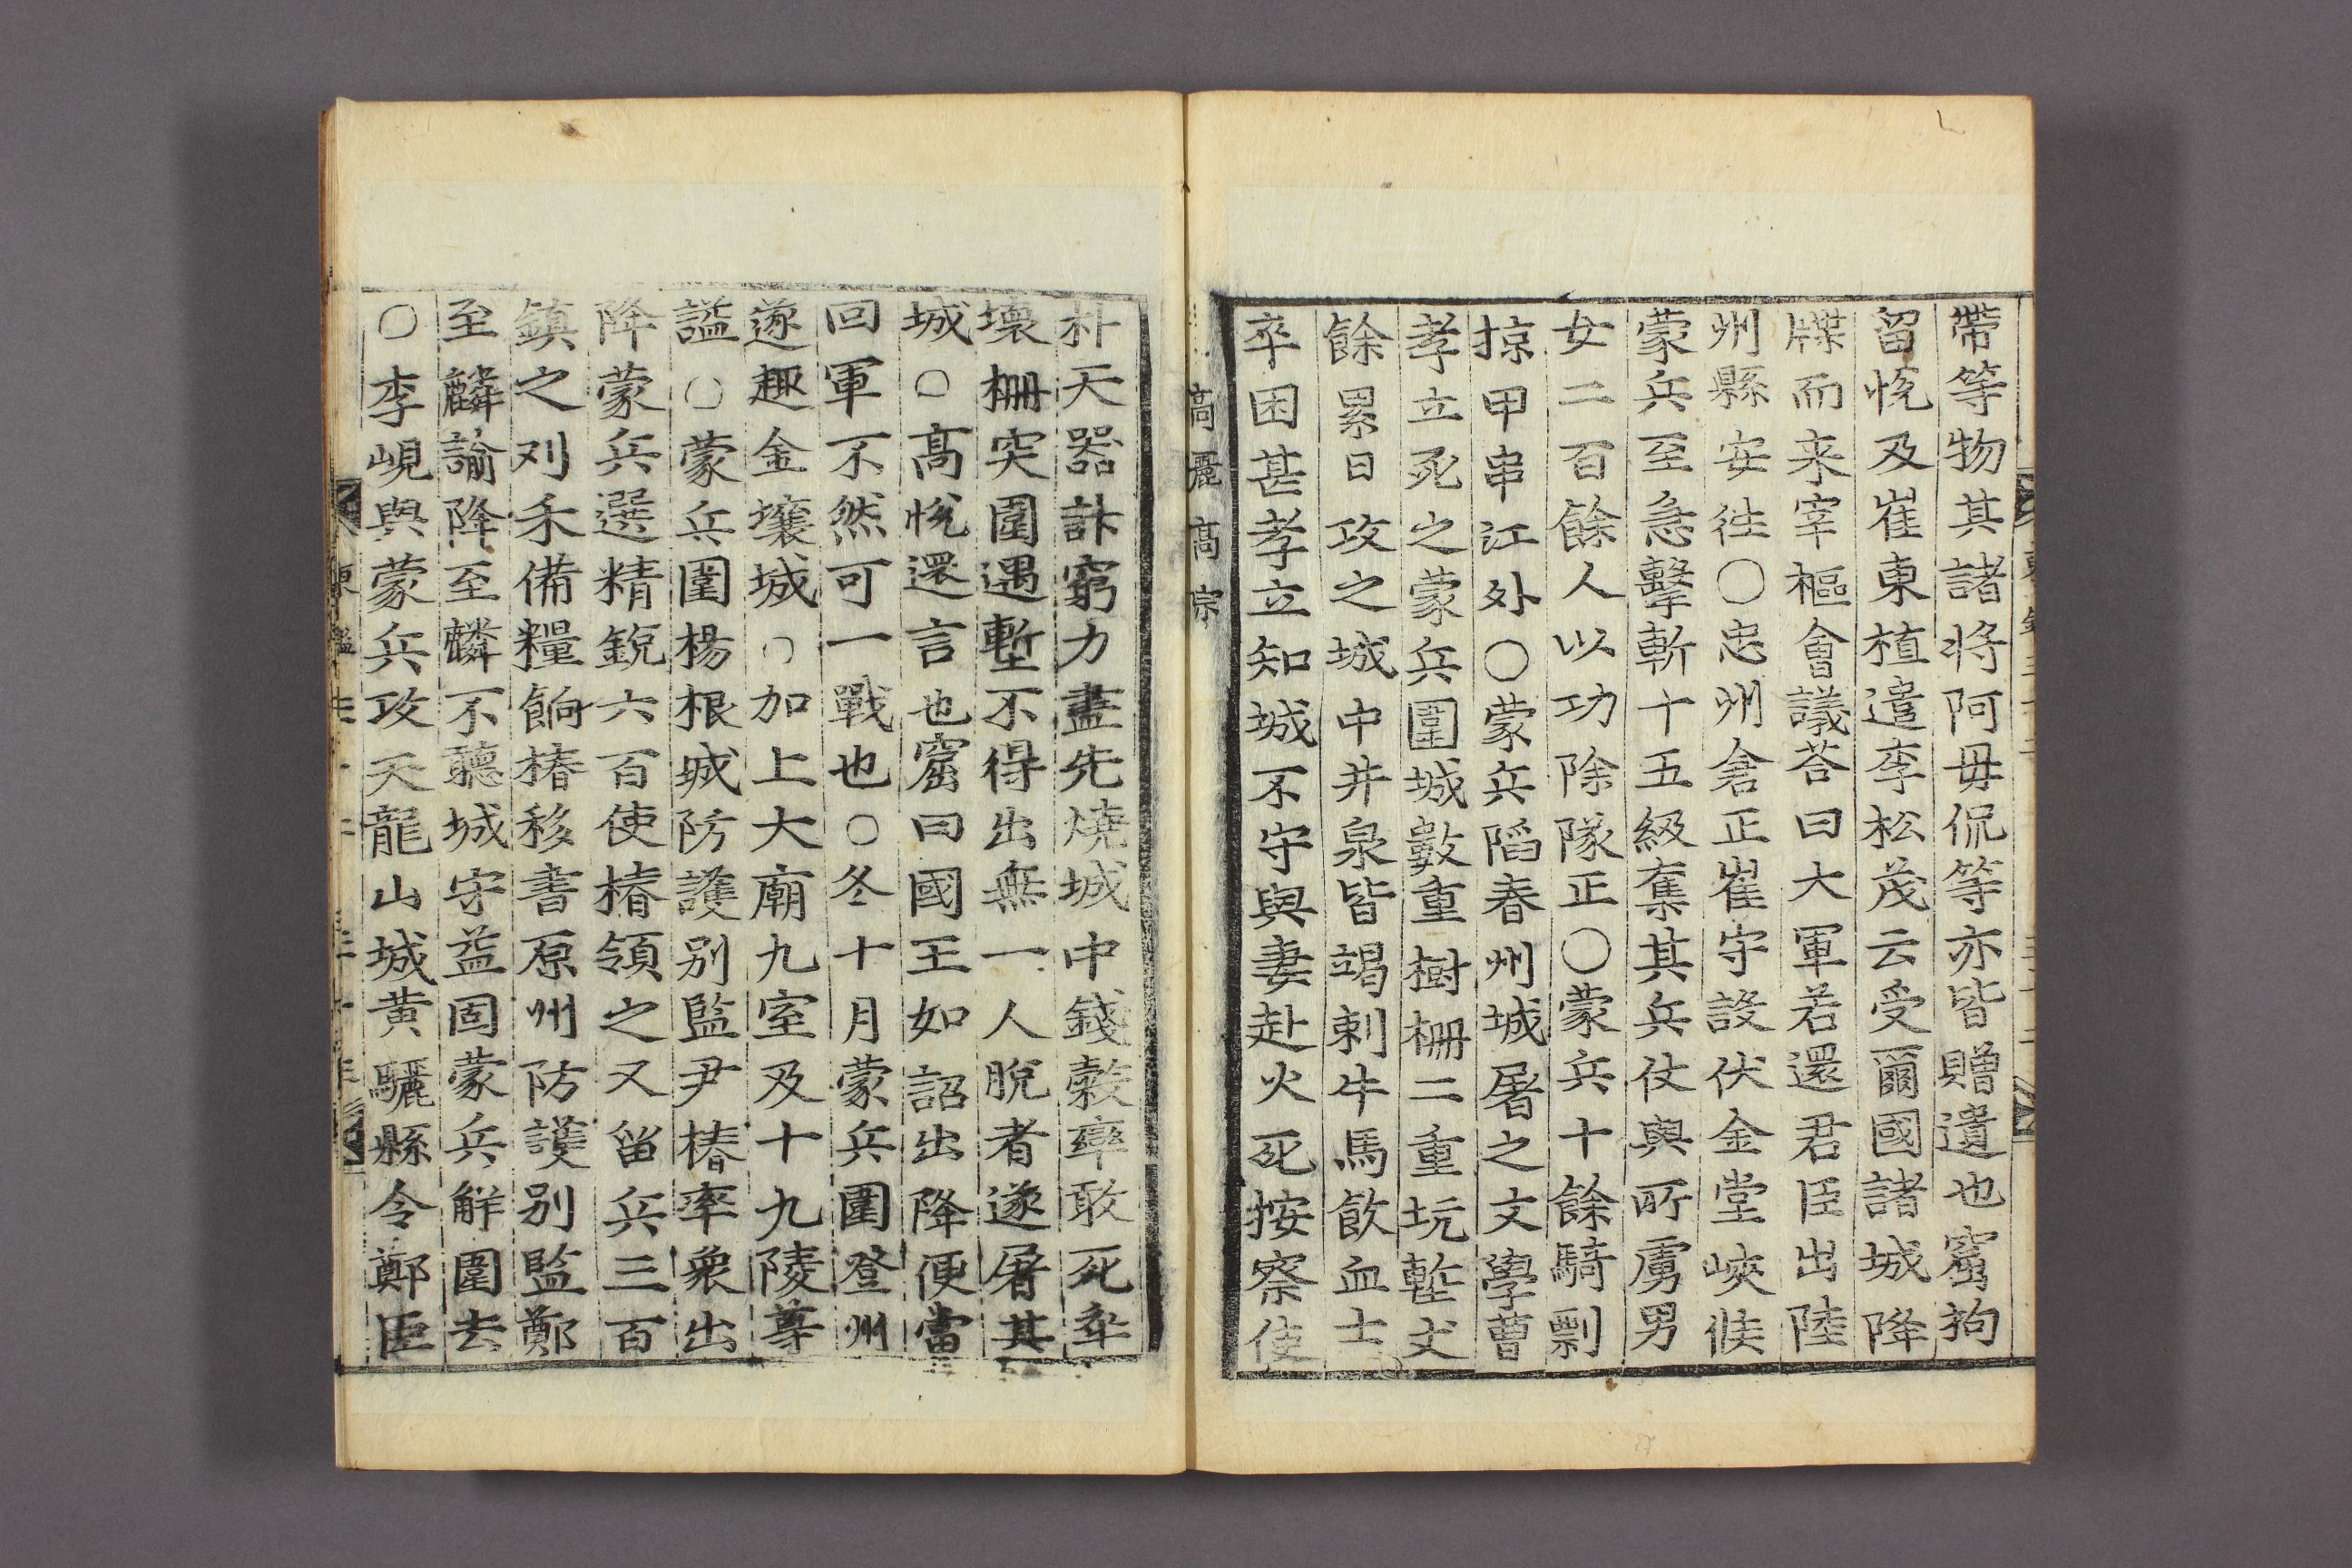 帶等物其諸将阿毋侃等亦皆贈遺也窟拘
留悅及崔東植遣李松茂云受爾國諸城降
牒而来宰樞會議荅曰大軍若還君臣出陸
州縣安往○忠州倉正崔守設伏金堂峽候
蒙兵至急擊斬十五級奪其兵仗與所虜男
女二百餘人以功除隊正○蒙兵十餘騎剽
掠甲串江外○蒙兵陷春州城屠之文學曹
孝立死之蒙兵圍城數重樹柵二重坑塹丈
餘累日攻之城中井泉皆竭刺牛馬飲血士
卒困甚孝立知城不守與妻赴火死按察使
高麗高宗
朴天器計窮力盡先燒城中錢穀率敢死卒
壞柵突圍遇塹不得出無一人脫者遂屠其
城○高悅還言也窟曰國王如詔出降便當
回軍不然可一戰也○冬十月蒙兵圍登州
遂趣金壤城○加上大廟九室及十九陵尊
謚○蒙兵圍楊根城防護别監尹椿率衆出
降蒙兵選精銳六百使椿領之又留兵三百
鎮之刈禾備糧餉椿移書原州防護别監鄭
至麟諭降至麟不聽城守益固蒙兵解圍去
○李峴與蒙兵攻天龍山城黄驪縣令鄭臣